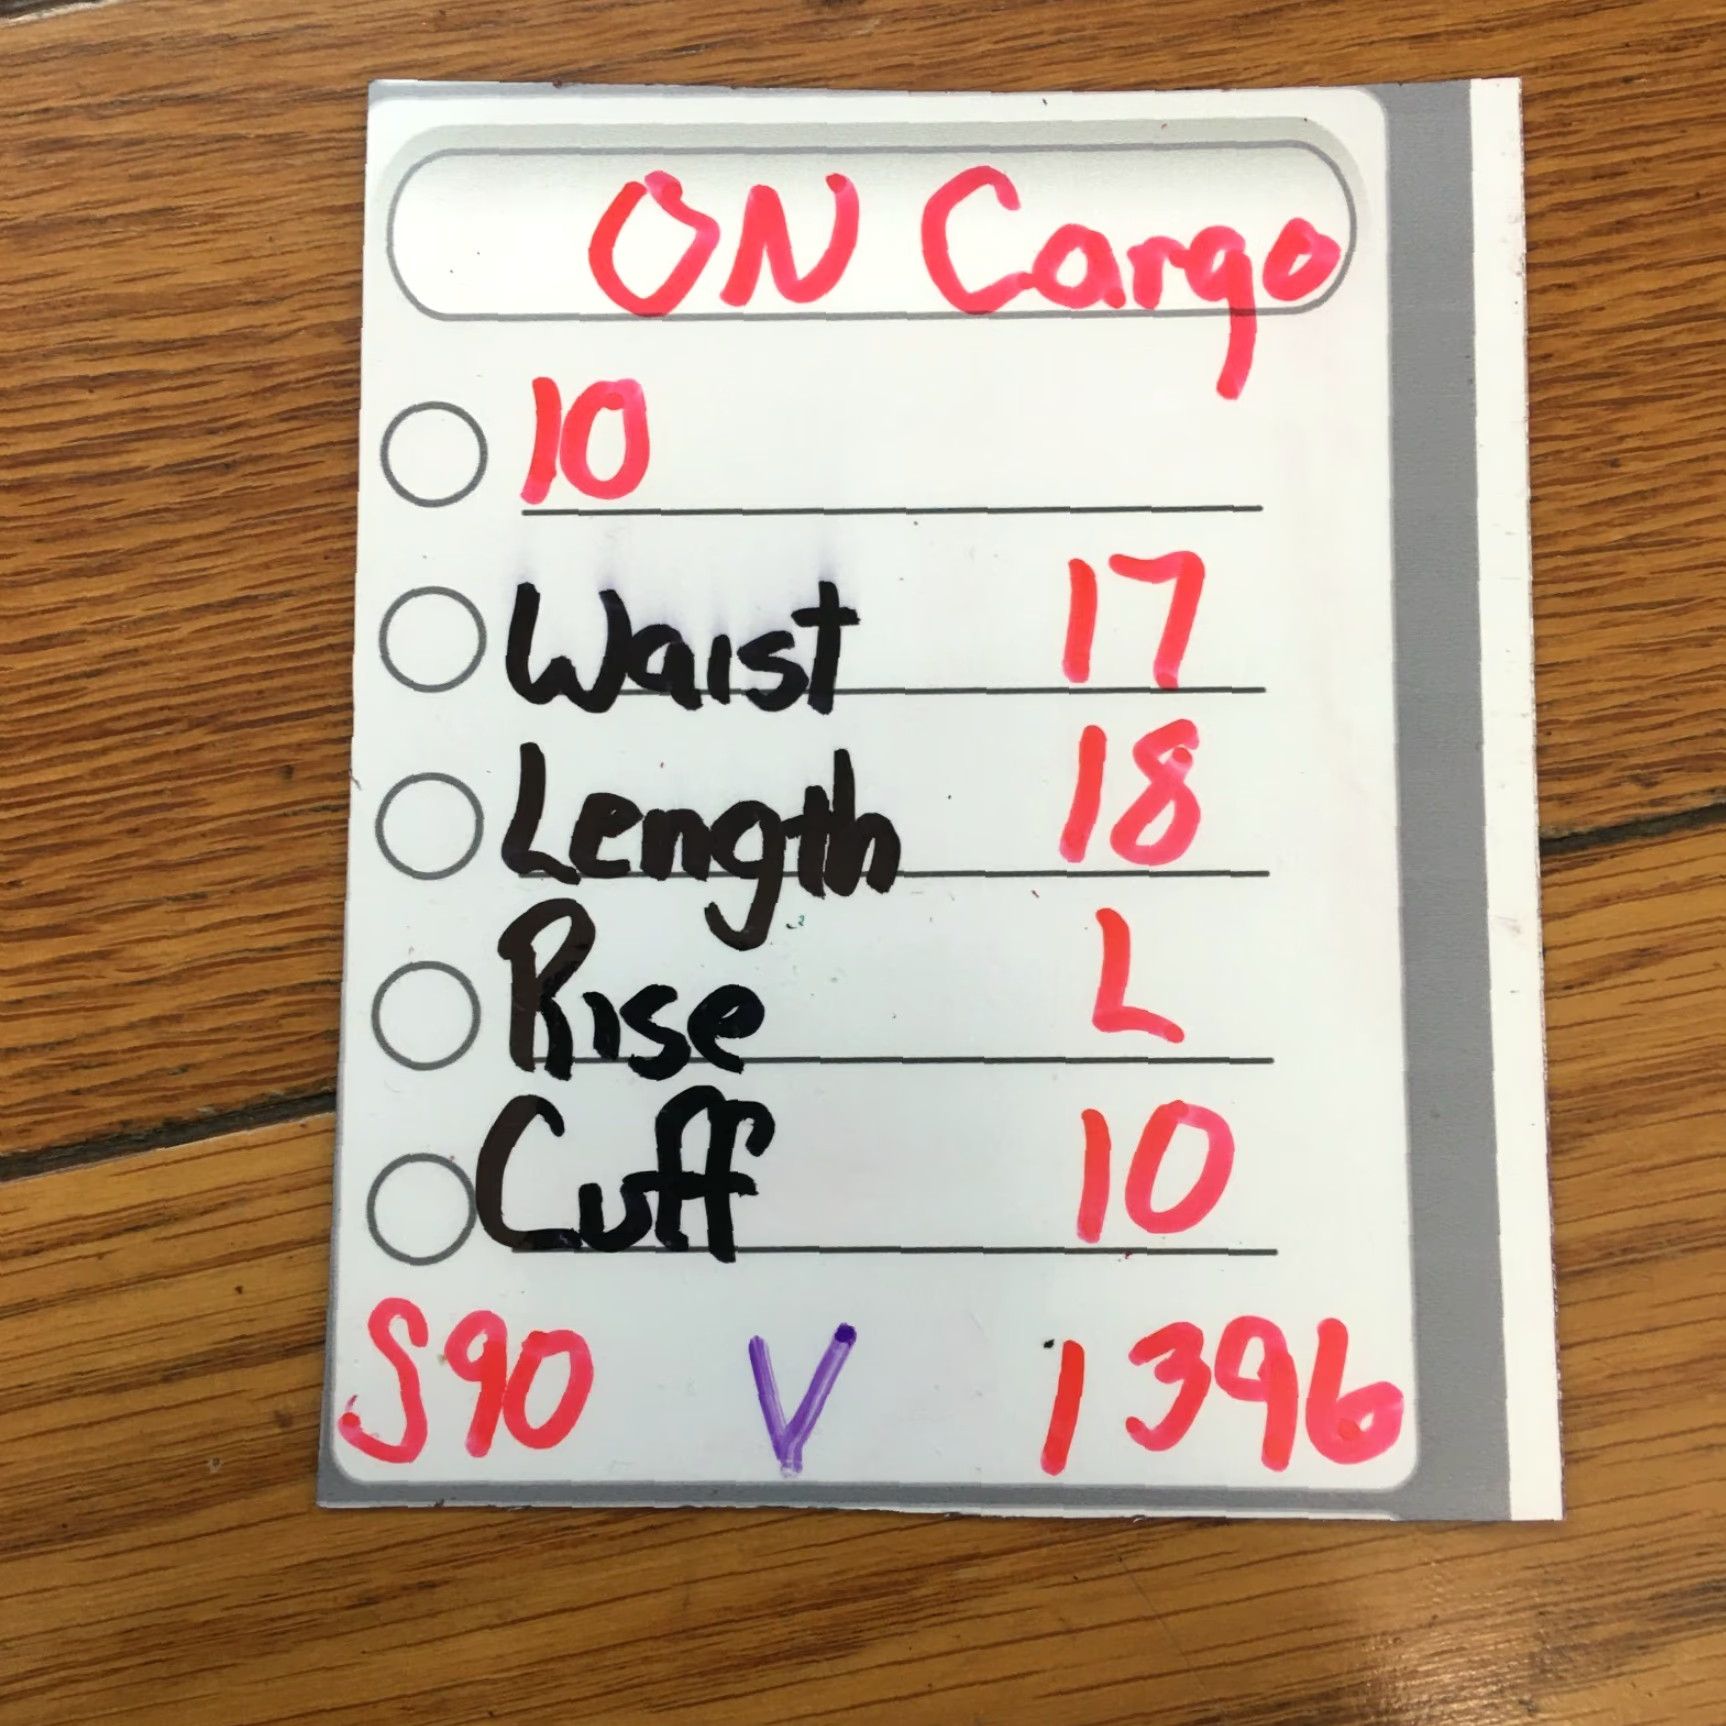 ON Cargo
10
Waist 17
Length 18
Rise L
Cuff 10
S90 V 1396